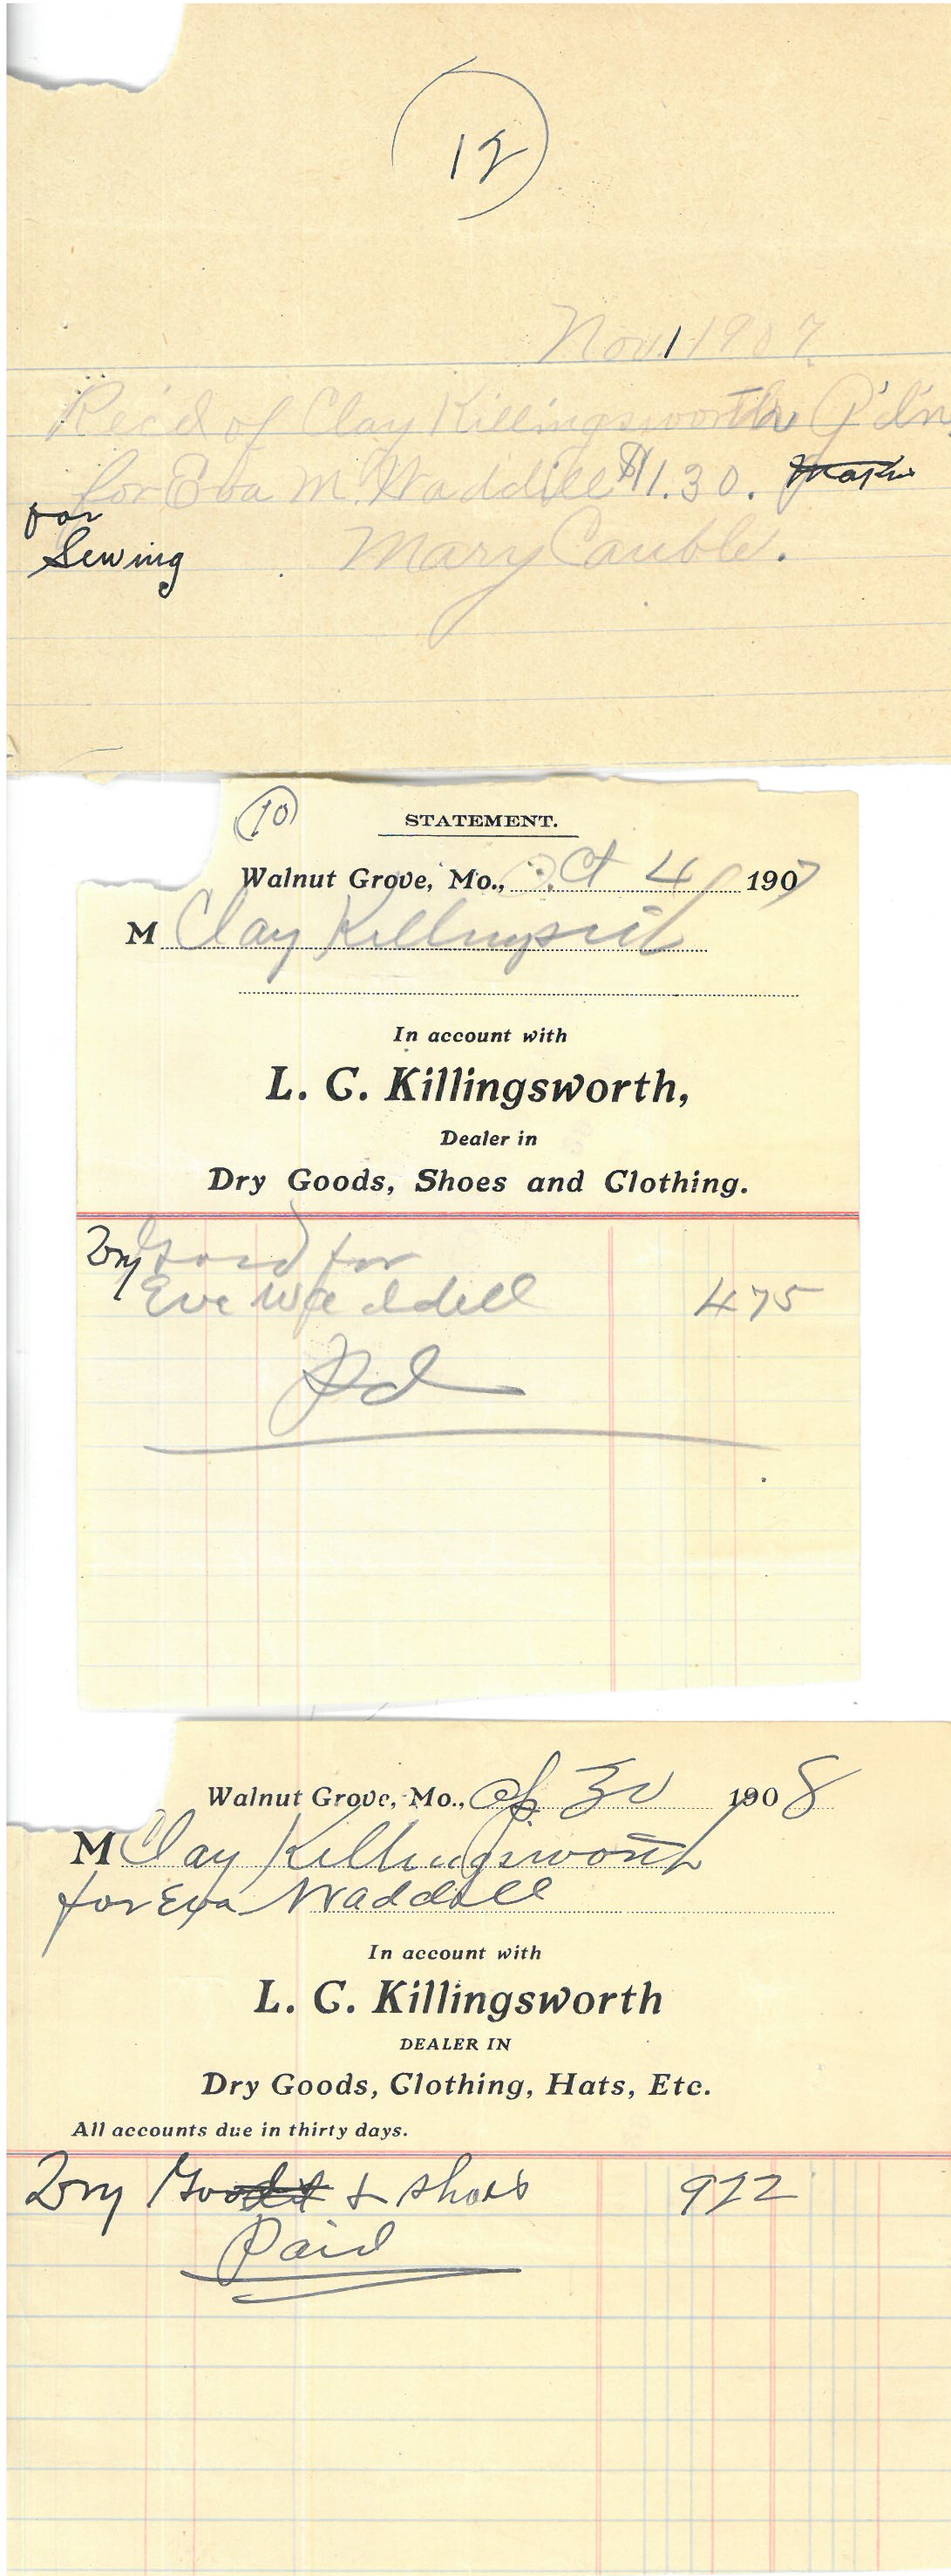 12
Nov. 1 1907.
Rec'd of Clay Killingsworth G'd'n
for Eva M. Waddill $1.30.
for
Sewing
Mary Cauble.
10
STATEMENT.
Walnut Grove, Mo., Oct 4 1907
M Clay Killingsworth
In account with
L. C. Killingsworth,
Dealer in
Dry Goods, Shoes and Clothing.
Dry Good for
Eva Waddell 475
Pd
Walnut Grove, Mo., 30 1908
M Clay Killingsworth
for Eva Waddell
In account with
L. C. Killingsworth
DEALER IN
Dry Goods, Clothing, Hats, Etc.
All accounts due in thirty days.
Dry Goods & shoes 922
Paid